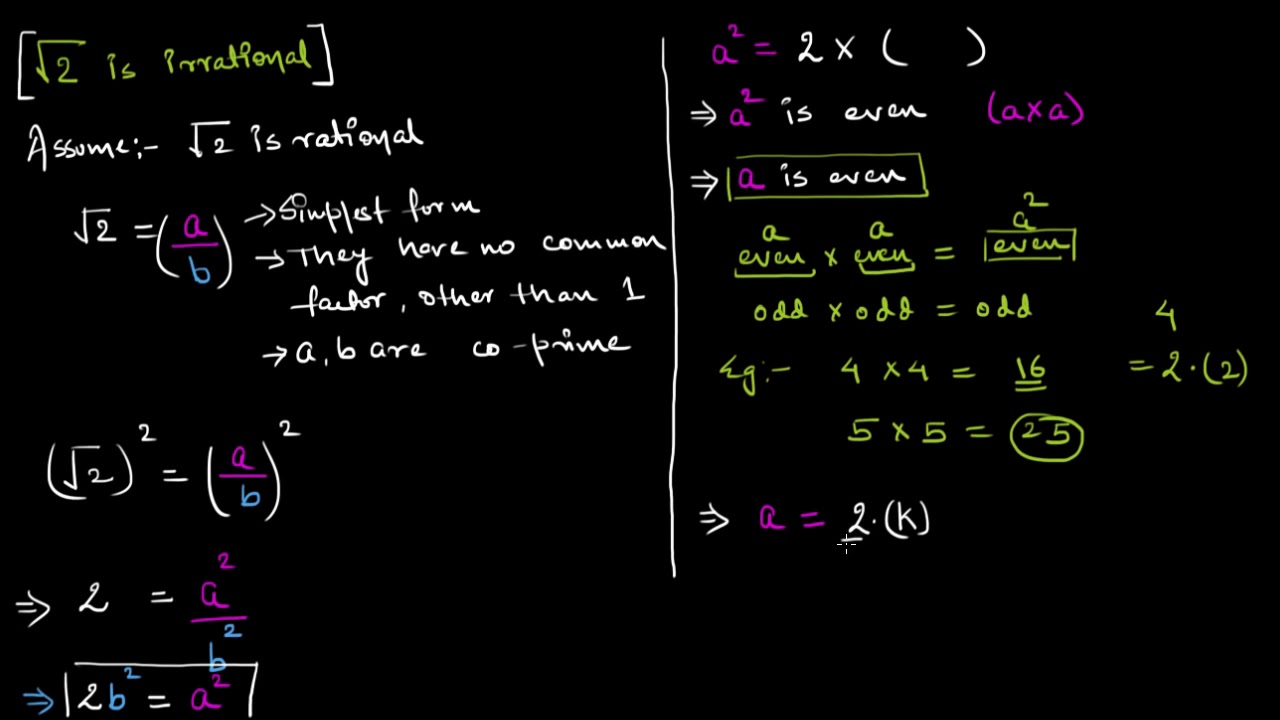 [√2 is irrational]
Assume:- √2 is rational
√2 = (a/b) → Simplest form
→ They have no common
factor, other than 1
→ a, b are co-prime
(√2)² = (a/b)²
⇒ 2 = a²/b²
⇒ 2b² = a²
a² = 2 × ( )
⇒ a² is even (a×a)
⇒ a is even
a a a²
even × even = even
odd × odd = odd
4
Eg:- 4 × 4 = 16 = 2·(2)
5 × 5 = 25
⇒ a = 2·(K)